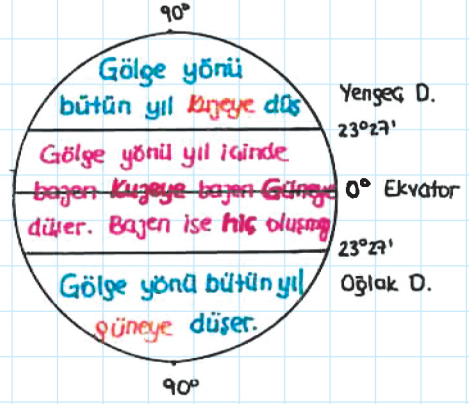 90°
Gölge yönü
bütün yıl kuzeye düş
Yengeç D.
23°27'
Gölge yönü yıl içinde
bazen Kuzeye bazen Güneye
0° Ekvator
düşer. Bazen ise hiç oluşmaz
23°27'
Gölge yönü bütün yıl
Oğlak D.
güneye düşer.
90°